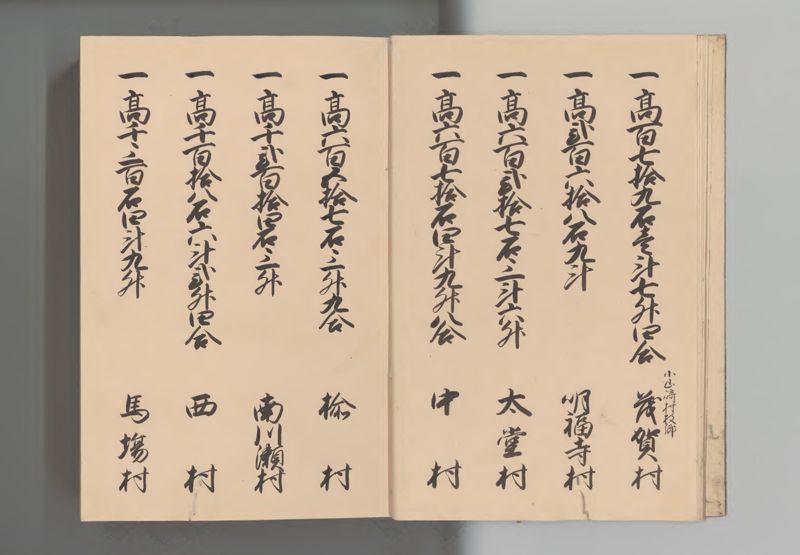 一高百七拾九石壱斗七升四合
小山崎村枝郷
茂賀村
一高弐百六拾八石九斗
明福寺村
一高六百弐拾七石三斗六升
太堂村
一高六百七拾石四斗九升八合
中村
一高六百六拾七石三升九合
村
一高千弐百拾四石三升
南川瀬村
一高千百拾八石六斗弐升四合
西村
一高千三百石四斗九升
馬場村